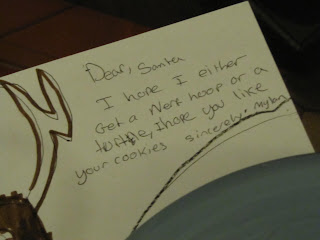 Dear, Santa
I hope I either
Get a Nerf hoop or a
turtle, I hope you like
your cookies sincerely.